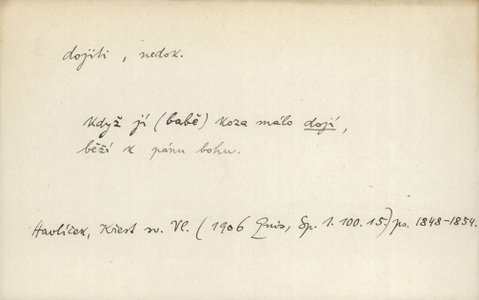 dojiti, nedok.
Když jí (babě) koza málo dojí,
běží k pánu bohu.
Havlíček, Křest sv. Vl. (1906 Quis, Sp. 1. 100. 15.) ps. 1848-1854.